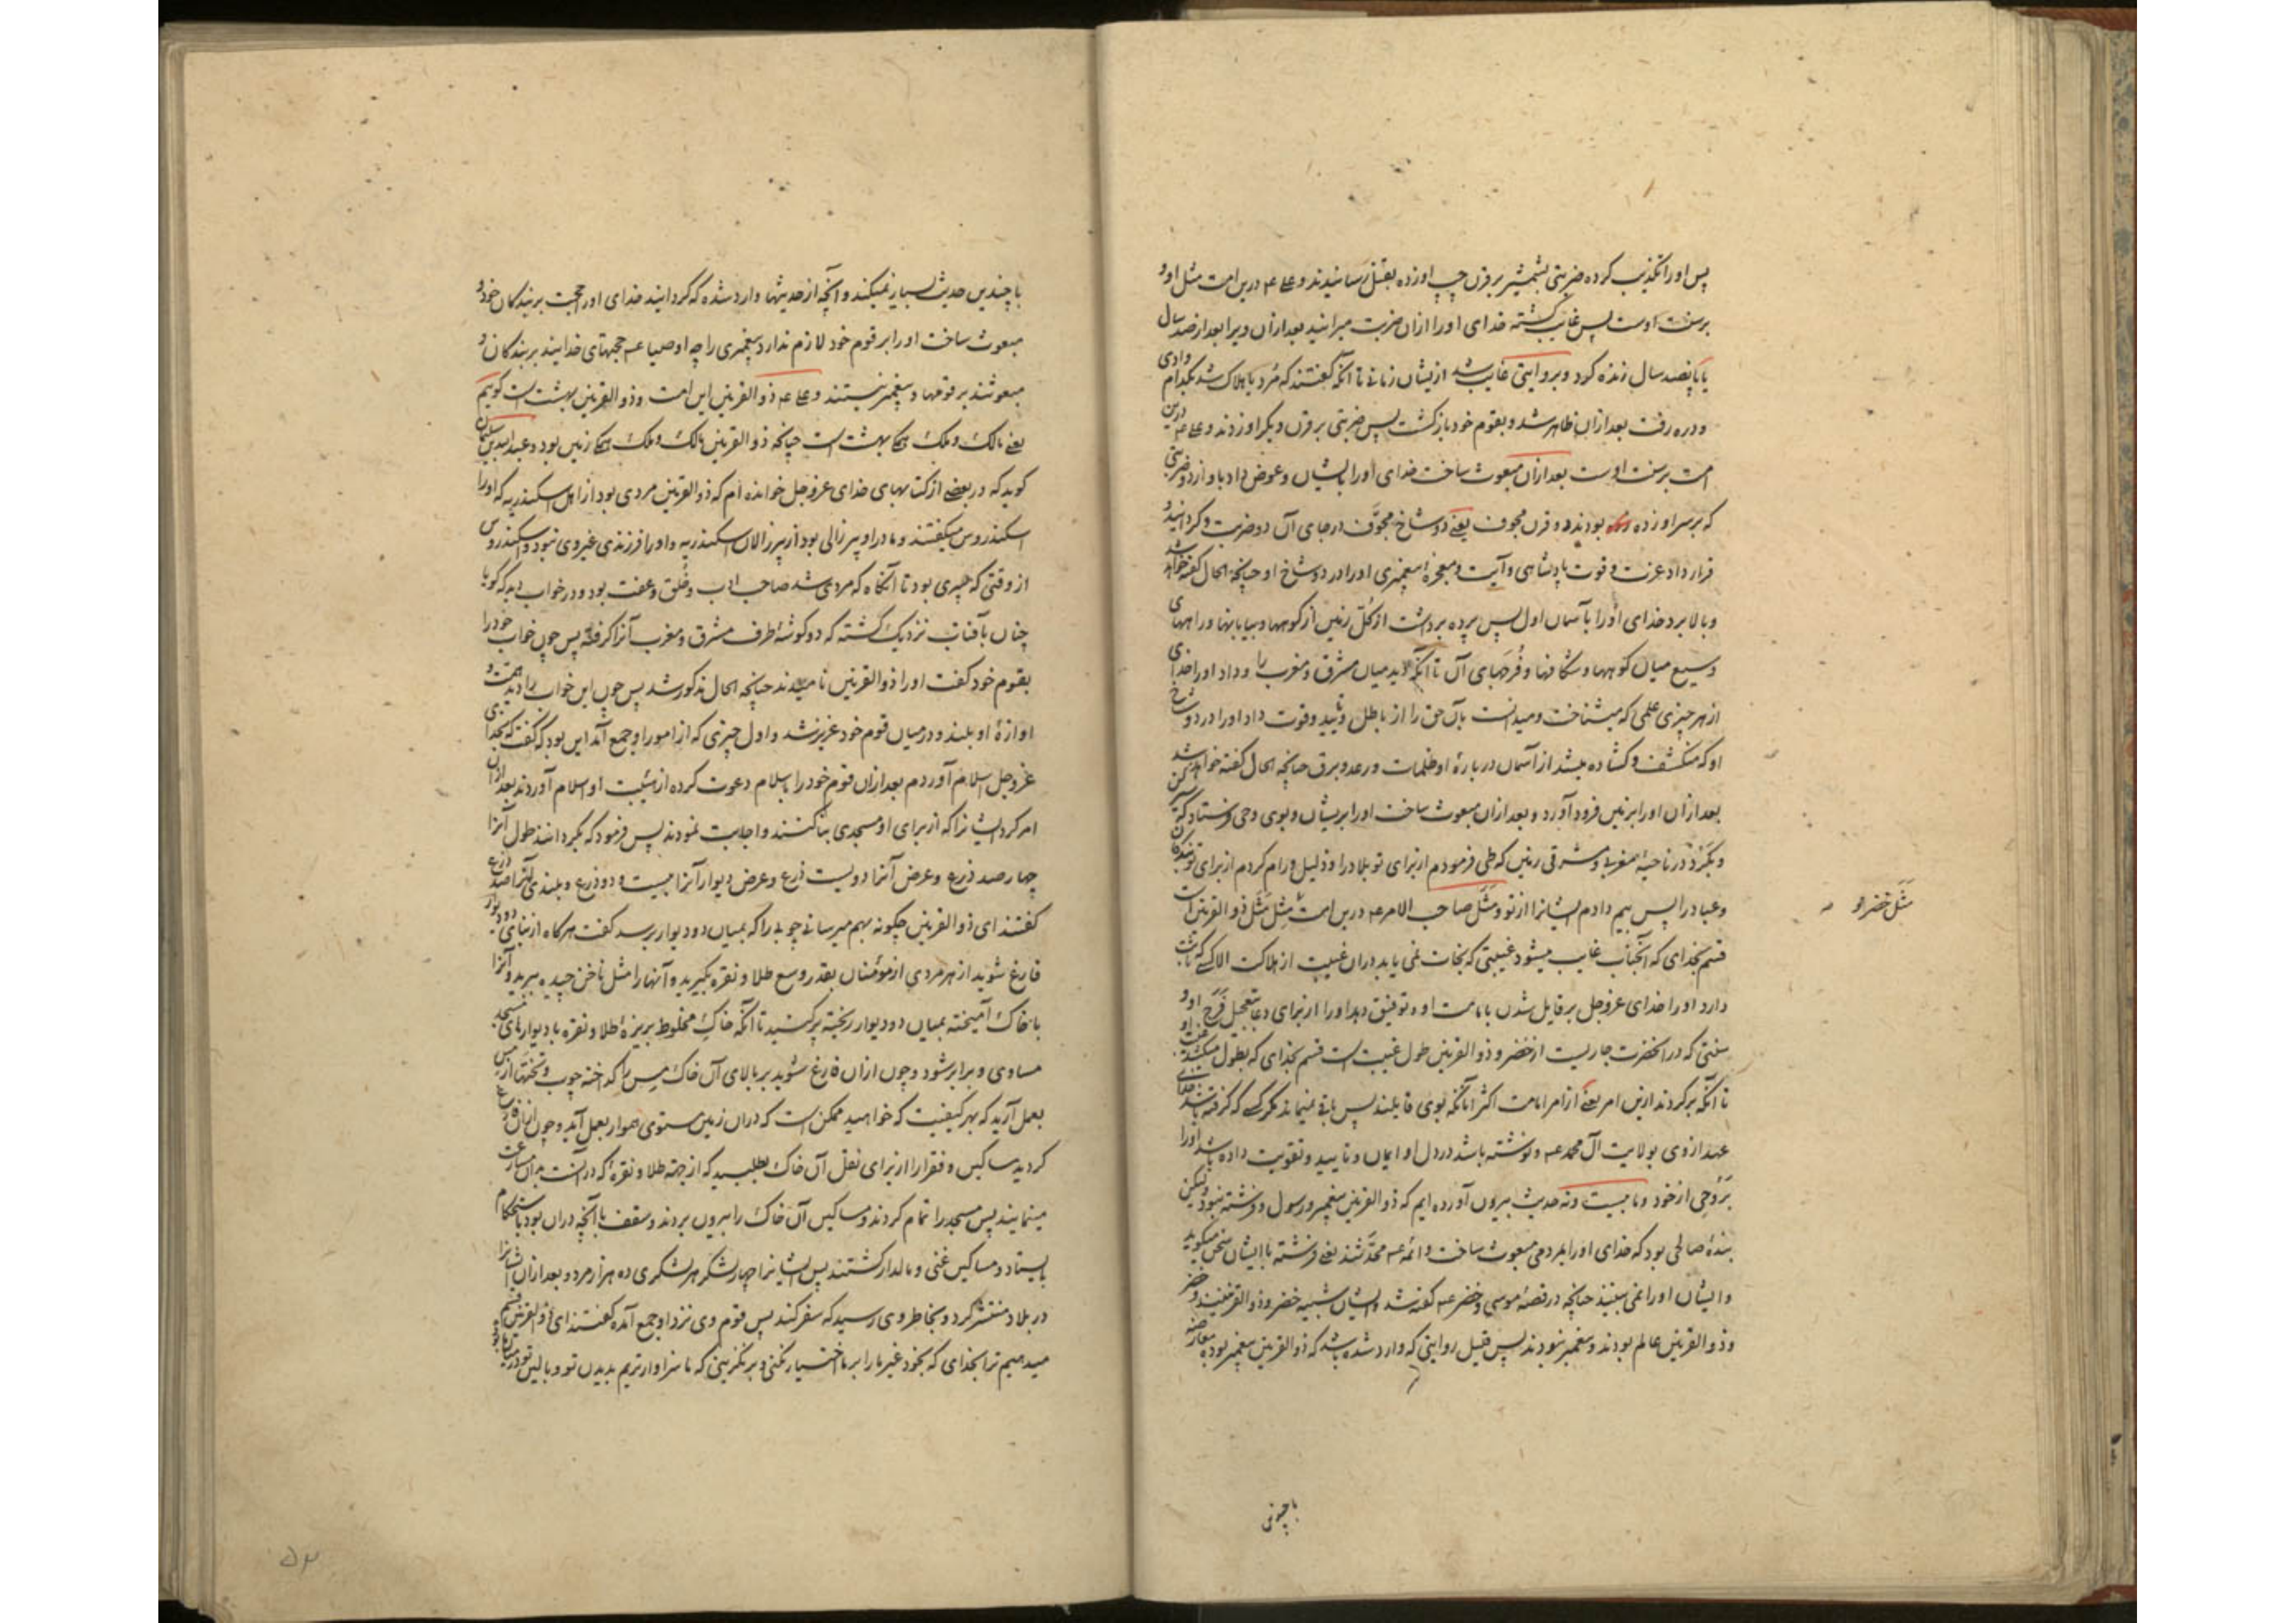 پس اورا تکذیب کرده ضربتی بشمشیر بر قرن چپ او زده بقتل رسانیدند و علی ع درین امت مثل او و
بر سنت اوست پس غایب گشته خدای اورا ازان ضربت میرانید بعد ازان ویرا بعد از صد سال
یا پانصد سال زنده کرد و بروایتی غایب شد ازیشان زمانی تا آنکه گفتند که مُرد یا هلاک شد بکدام وادی
و دره رفت بعد ازان ظاهر شد و بقوم خود بازگشت پس ضربتی بر قرن دیگر او زدند و علی ع درین
امت بر سنت اوست بعد ازان مبعوث ساخت خدای اورا بایشان و عوض داد باو از دو ضربتی
که بر سر او زده بودند دو قرن مجوف یعنی دو شاخ مجوّف در جای آن دو ضربت و گردانید و
قرار داد عزت و قوت پادشاهی و آیت و معجزهٔ پیغمبری اورا در دو شاخ او چنانچه الحال گفته خواهد شد
و بالا برد خدای اورا بآسمان اول پس پرده برداشت از کُلّ زمین از کوهها و بیابانها و راههای
وسیع میان کوهها و شکافها و فُرجهای آن تا آنکه دید میان مشرق و مغرب را و داد اورا خدای
از هر چیزی علمی که میشناخت و میدانست بآن حق را از باطل و تأیید و قوت داد اورا در دو شاخ
او که منکشف و گشاده میشد از آسمان دربارهٔ او ظلمات و رعد و برق چنانچه الحال گفته خواهد شد
بعد ازان اورا بزمین فرود آورد و بعد ازان مبعوث ساخت اورا بریشان و بوی وحی فرستاد که سیر کن
و بگرد در ناحیهٔ مغربی و مشرقی زمین که طی فرمودم از برای تو بلاد را و ذلیل و رام کردم از برای تو بندگان
و عباد را پس بیم دادم ایشانرا از تو و مَثَل صاحب الامر ع درین امت مِثل مَثَل ذو القرنین است
مَثَل خضر و
قسم بخدای که آنجناب غایب میشود غیبتی که نجات نمی یابد دران غیبت از هلاکت الا کسی که ثابت
دارد اورا خدای عزوجل بر قایل شدن بامامت او و توفیق دهد اورا از برای دعا بتعجیل فَرَج او و
سنتی که در آنحضرت جاریست از خضر و ذو القرنین طول غیبت است قسم بخدای که بطول میکشد غیبت او
تا آنکه برگردند ازین امر یعنی از امر امامت اکثر آنانکه بوی قایلند پس باقی نمیماند مگر کسی که گرفته باشد خدای
عهد ازوی بولایت آل محمد ع و نوشته باشد در دل او ایمان و تأیید و تقویت داده باشد اورا
بروحی از خود و ما بیست و نه حدیث بیرون آورده ایم که ذو القرنین پیغمبر و رسول و فرشته نبود ولیکن
بندهٔ صالحی بود که خدای اورا بمردمی مبعوث ساخت و ائمه ع محدَّثند یعنی فرشته با ایشان سخن میگوید
و ایشان اورا نمی بینند چنانچه در قصهٔ موسی و خضر ع گفته شد و ایشان شبیه خضر و ذو القرنینند و خضر
و ذو القرنین عالم بودند و پیغمبر نبودند پس قلیل روایتی که وارد شده باشد که ذو القرنین پیغمبر بوده معارضه
با چندین
با چندین حدیث بسیار نمیکند و آنچه از حدیثها وارد شده که گردانید خدای اورا حجت بر بندگان خود و
مبعوث ساخت اورا بر قوم خود لازم ندارد پیغمبری را چه اوصیا ع حجتهای خدایند بر بندگان و
مبعوثند بر قومها و پیغمبر نیستند و علی ع ذو القرنین این امت و ذو القرنین بهشت است گویم
یعنی مالک و ملک همگی بهشت است چنانکه ذو القرنین مالک و ملک همگی زمین بود و عبدالله بن سلیمان
گوید که در بعضی از کتابهای خدای عزوجل خوانده ام که ذو القرنین مردی بود از اهل اسکندریه که اورا
اسکندروس میگفتند و مادر او پیر زالی بود از پیر زالان اسکندریه و اورا فرزندی غیر وی نبود و اسکندروس
از وقتی که پسری بود تا آنگاه که مردی شد صاحب ادب و خُلق و عفت بود و در خواب دید که گویا
چنان بآفتاب نزدیک گشته که دو گوشهٔ طرف مشرق و مغرب آنرا گرفته پس چون خواب خود را
بقوم خود گفت اورا ذو القرنین نامیدند چنانچه الحال مذکور شد پس چون این خواب را دید همت و
اوازهٔ او بلند و در میان قوم خود عزیز شد و اول چیزی که از امور او جمع آمد این بود که گفت که بخدای
عزوجل اسلام آوردم بعد ازان قوم خود را باسلام دعوت کرده از هیبت او اسلام آوردند بعد ازان
امر کرد ایشانرا که از برای او مسجدی بنا کنند و اجابت نمودند پس فرمود که بگردانند طول آنرا
چهار صد ذرع و عرض آنرا دویست ذرع و عرض دیوار آنرا بیست و دو ذرع و بلندی آنرا صد ذرع
گفتند ای ذو القرنین چگونه بهم میرسانی چوبی را که بمیان دو دیوار برسد گفت هرگاه از بنای دو دیوار
فارغ شوید از هر مردی از مؤمنان بقدر وسع طلا و نقره بگیرید و آنها را مثل ناخن چیده ببرید و آنرا
با خاک آمیخته بمیان دو دیوار ریخته پر کنید تا آنکه خاک مخلوط بریزهٔ طلا و نقره با دیوارهای مسجد
مساوی و برابر شود و چون ازان فارغ شوید بر بالای آن خاک مس را گداخته چوب و تختها از مس
بعمل آرید که بهر کیفیت که خواهید ممکن است که دران زمین مستوی هموار بعمل آید و چون ازان فارغ
گردید مساکین و فقرا را از برای نقل آن خاک بطلبید که از جهته طلا و نقره که در آنست بران مسارعت
مینمایند پس مسجد را تمام کردند و مساکین آن خاک را بیرون بردند و سقف باآنچه دران بود باستحکام
بایستاد و مساکین غنی و مالدار گشتند پس ایشانرا چهار لشکر هر لشکری ده هزار مرد و بعد ازان ایشانرا
در بلاد منتشر کرد و بخاطر وی رسید که سفر کند پس قوم وی نزد او جمع آمده گفتند ای ذو القرنین قسم
میدهیم ترا بخدای که بخود غیر ما را بر ما اختیار نکنی و بر نگزینی که ما سزاوارتریم بدیدن تو و
۵۳